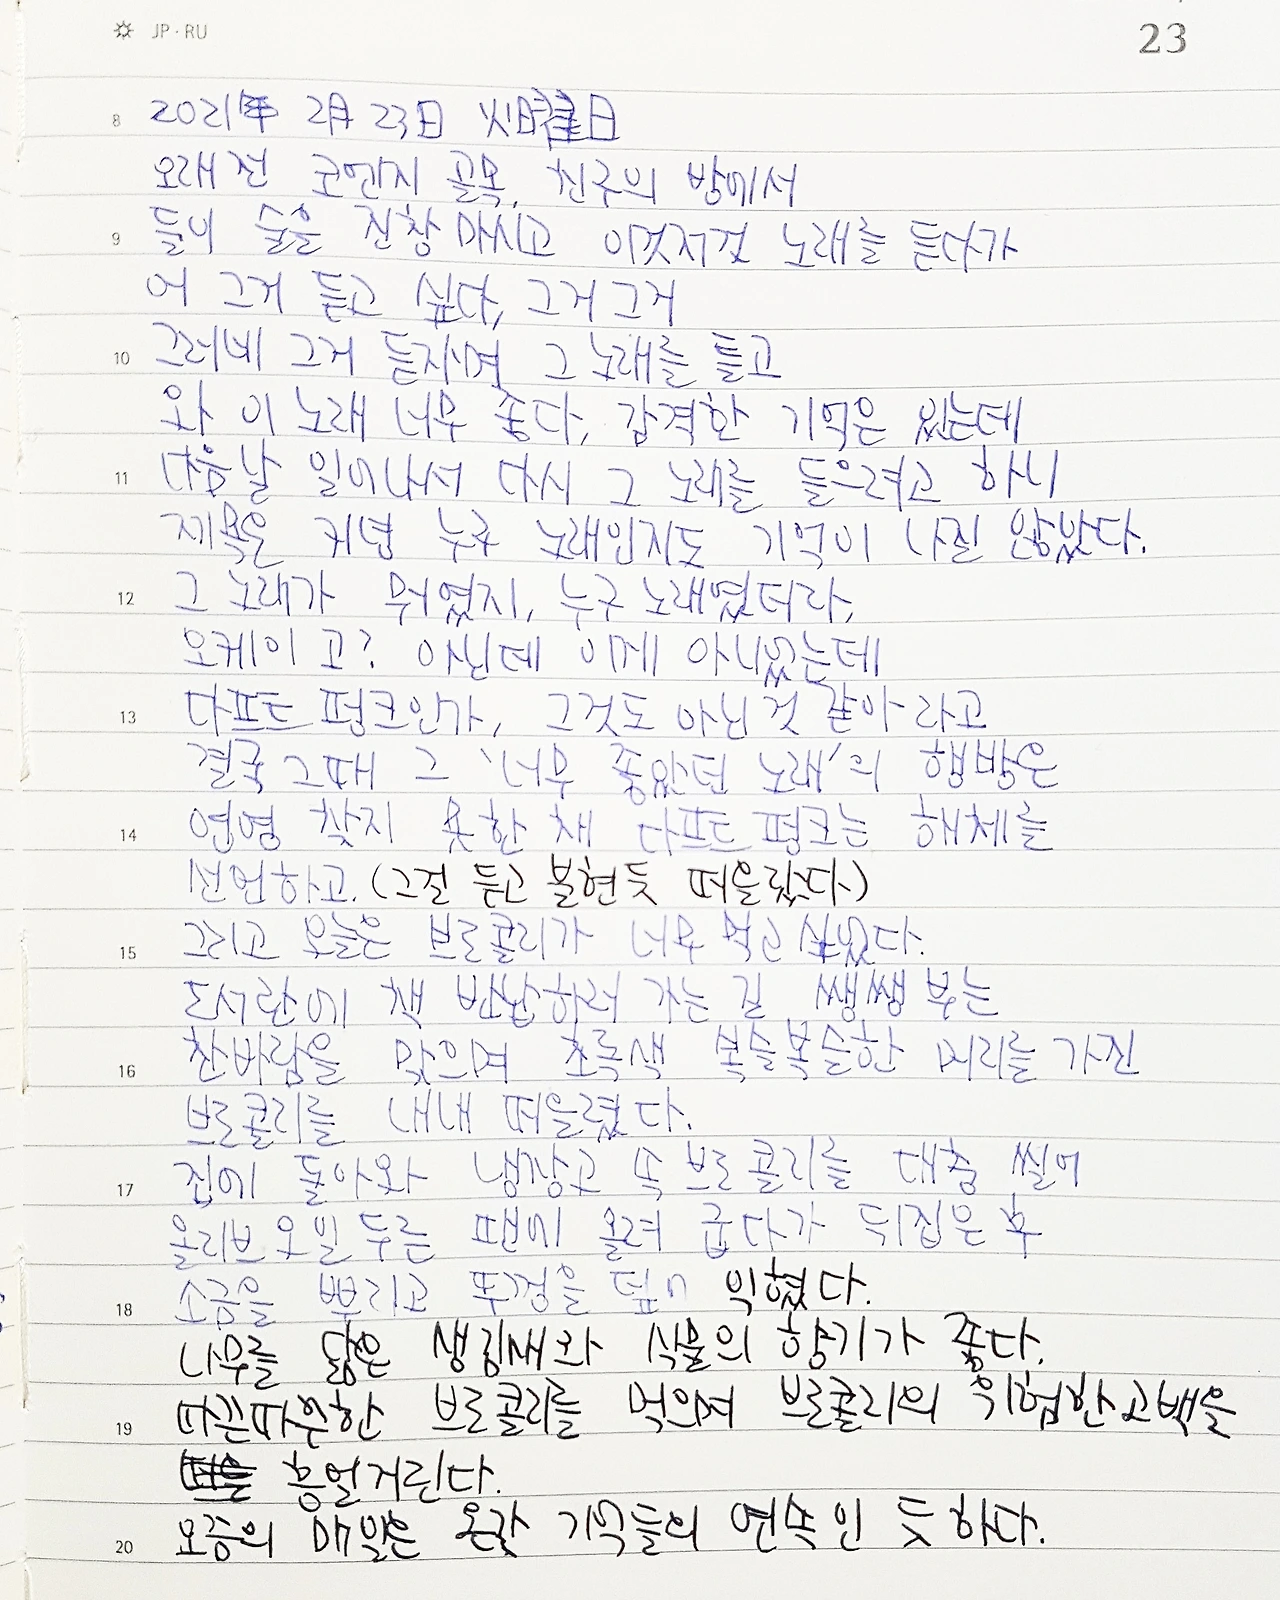 JP·RU
23
8 2021年 2月 23日 火曜日
오래 전 코엔지 골목, 친구의 방에서
9 둘이 술을 진창 마시고 이것저것 노래를 듣다가
어 그거 듣고 싶다, 그거 그거
10 그러네 그거 듣자며 그 노래를 틀고
와 이 노래 너무 좋다, 감격한 기억은 있는데
11 다음날 일어나서 다시 그 노래를 들으려고 하니
제목은 커녕 누구 노래인지도 기억이 나질 않았다.
12 그 노래가 뭐였지, 누구 노래였더라,
오케이 고? 아닌데 이게 아니었는데
13 다프트 펑크인가, 그것도 아닌 것 같아 라고
결국 그때 그 '너무 좋았던 노래'의 행방은
14 영영 찾지 못한 채 다프트 펑크는 해체를
선언하고. (그걸 듣고 불현듯 떠올랐다)
15 그리고 오늘은 브로콜리가 너무 먹고 싶었다.
도서관에 책 반납하러 가는 길 쌩쌩 부는
16 찬바람을 맞으며 초록색 복슬복슬한 머리를 가진
브로콜리를 내내 떠올렸다.
17 집에 돌아와 냉장고 속 브로콜리를 대충 썰어
올리브 오일 두른 팬에 올려 굽다가 뒤집은 후
18 소금을 뿌리고 뚜껑을 덮어 익혔다.
나무를 닮은 생김새와 식물의 향기가 좋다.
19 따끈따끈한 브로콜리를 먹으며 브로콜리의 위험한 고백을
흥얼거린다.
20 요즘의 매일은 온갖 기억들의 연속인 듯 하다.